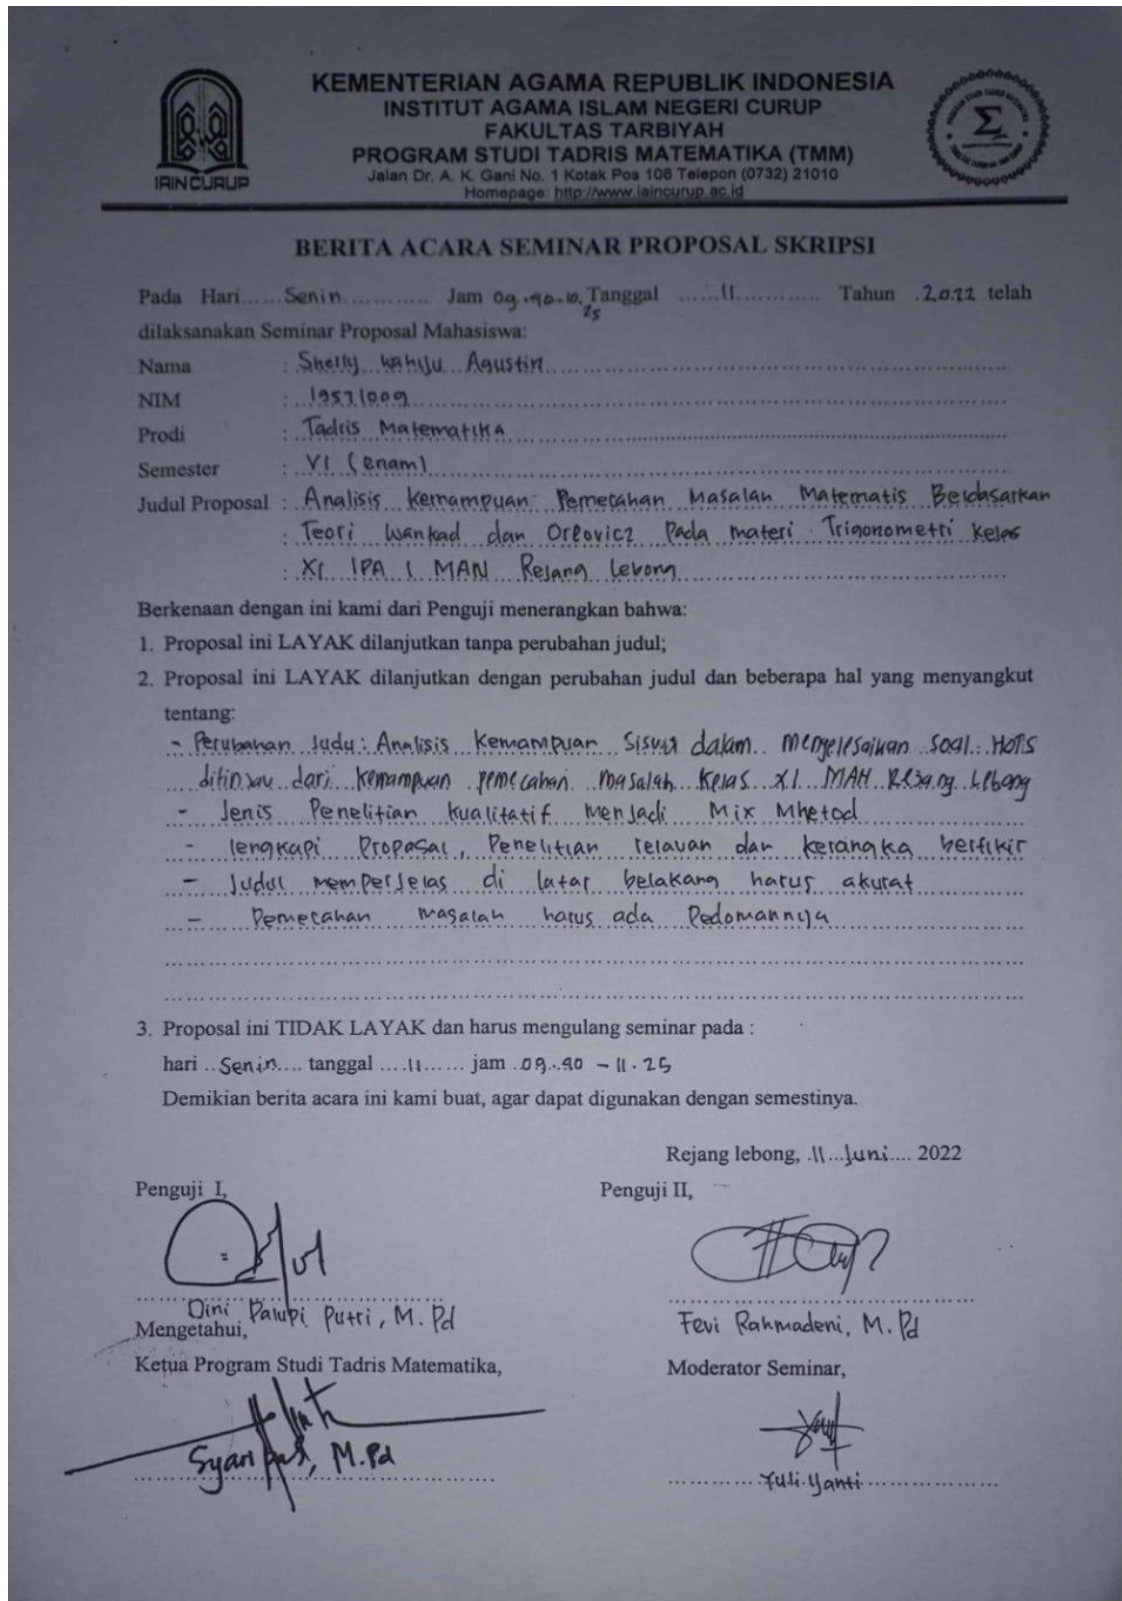 KEMENTERIAN AGAMA REPUBLIK INDONESIA
INSTITUT AGAMA ISLAM NEGERI CURUP
FAKULTAS TARBIYAH
PROGRAM STUDI TADRIS MATEMATIKA (TMM)
Jalan Dr. A. K. Gani No. 1 Kotak Pos 108 Telepon (0732) 21010
Homepage: http://www.iaincurup.ac.id
IAIN CURUP
BERITA ACARA SEMINAR PROPOSAL SKRIPSI
Pada Hari...... Senin............ Jam 09.40-10.25 Tanggal ......11............ Tahun .2022 telah
dilaksanakan Seminar Proposal Mahasiswa:
Nama : Shelly Wahyu Agustin
NIM : 19571009
Prodi : Tadris Matematika
Semester : VI (enam)
Judul Proposal : Analisis Kemampuan Pemecahan Masalah Matematis Berdasarkan
: Teori Wankad dan Oreovicz Pada materi Trigonometri Kelas
: XI IPA 1 MAN Rejang Lebong
Berkenaan dengan ini kami dari Penguji menerangkan bahwa:
1. Proposal ini LAYAK dilanjutkan tanpa perubahan judul;
2. Proposal ini LAYAK dilanjutkan dengan perubahan judul dan beberapa hal yang menyangkut
tentang:
- Perubahan Judu: Analisis Kemampuan Siswa dalam menyelesaikan soal HOTS
ditinjau dari kemampuan pemecahan masalah kelas XI MAN Rejang Lebong
- Jenis Penelitian kualitatif menjadi Mix Mhetod
- lengkapi Proposal, Penelitian relavan dan kerangka berfikir
- Judul memperjelas di latar belakang harus akurat
- Pemecahan masalah harus ada Pedomannya
3. Proposal ini TIDAK LAYAK dan harus mengulang seminar pada :
hari ..Senin.... tanggal ....11...... jam .09.40 - 11.25
Demikian berita acara ini kami buat, agar dapat digunakan dengan semestinya.
Rejang lebong, .11...Juni.... 2022
Penguji I,
Penguji II,
Dini Palupi Putri, M.Pd
Fevi Rahmadeni, M.Pd
Mengetahui,
Ketua Program Studi Tadris Matematika,
Moderator Seminar,
M.Pd
Yuli yanti